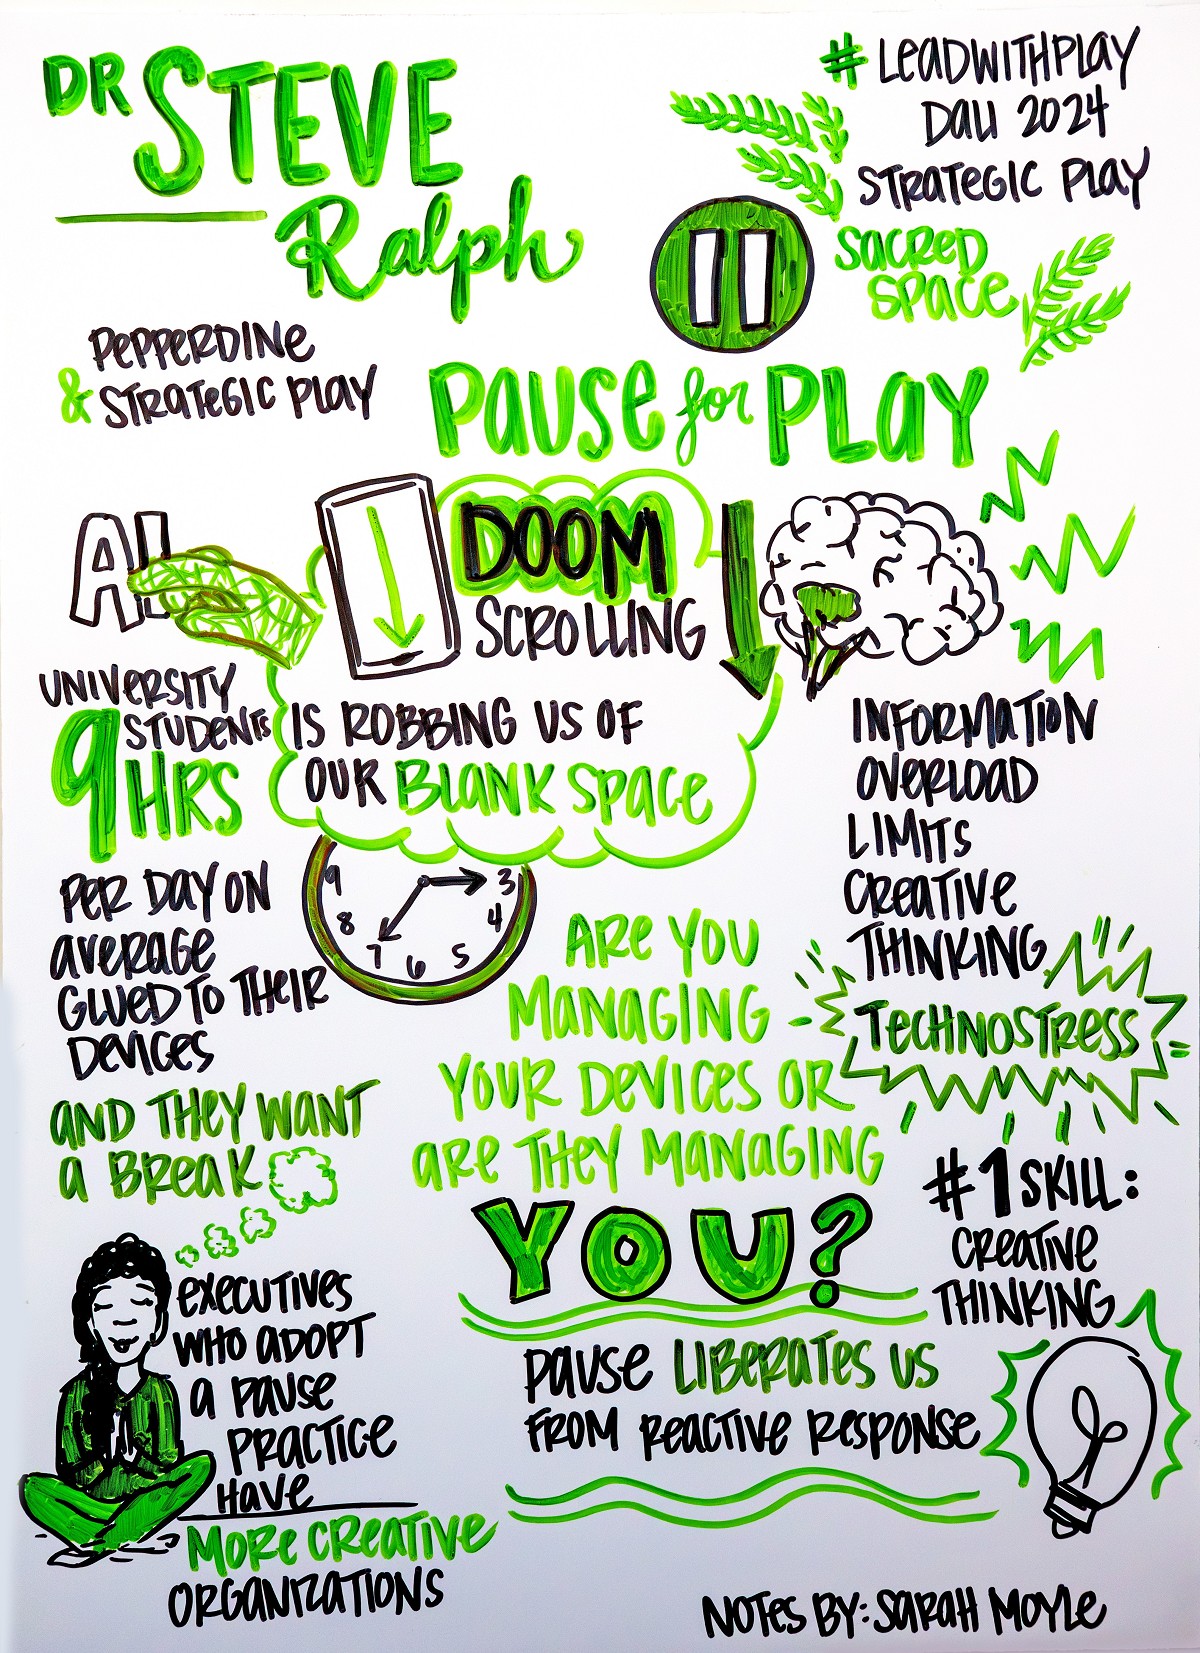 DR STEVE
Ralph
PEPPERDINE
& STRATEGIC PLAY
# LEADWITHPLAY
DALI 2024
STRATEGIC PLAY
SACRED
SPACE
PAUSE for PLAY
AI
DOOM
SCROLLING
IS ROBBING US OF
OUR BLANK SPACE
UNIVERSITY
STUDENTS
9 HRS
PER DAY ON
AVERAGE
GLUED TO THEIR
DEVICES
AND THEY WANT
A BREAK
9
8
7
6
5
4
3
INFORMATION
OVERLOAD
LIMITS
CREATIVE
THINKING
TECHNOSTRESS
ARE YOU
MANAGING
YOUR DEVICES OR
ARE THEY MANAGING
YOU?
#1 SKILL:
CREATIVE
THINKING
PAUSE LIBERATES US
FROM REACTIVE RESPONSE
EXECUTIVES
WHO ADOPT
A PAUSE
PRACTICE
HAVE
MORE CREATIVE
ORGANIZATIONS
NOTES BY: SARAH MOYLE